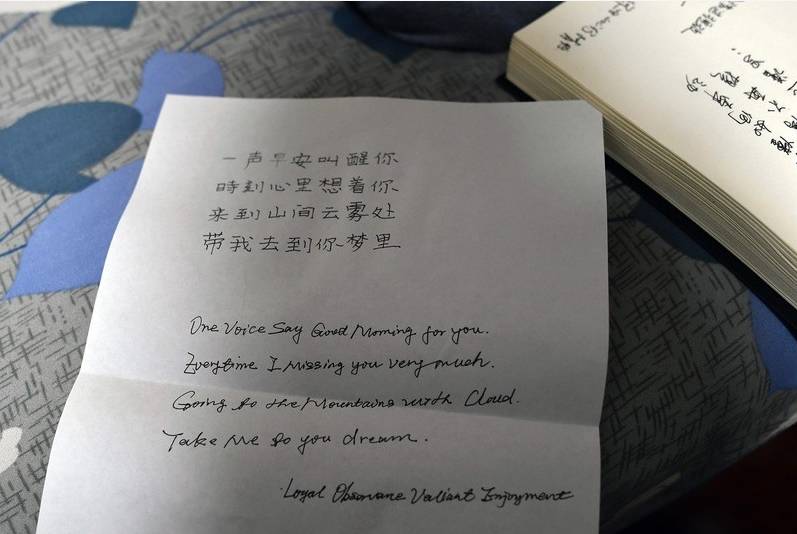 一声早安叫醒你
時刻心里想着你
来到山间云雾处
带我去到你梦里
One Voice Say Good Morning for you.
Everytime I Missing you very much.
Going to the Mountains with Cloud.
Take Me to you dream.
Loyal Observane Valiant Enjoyment